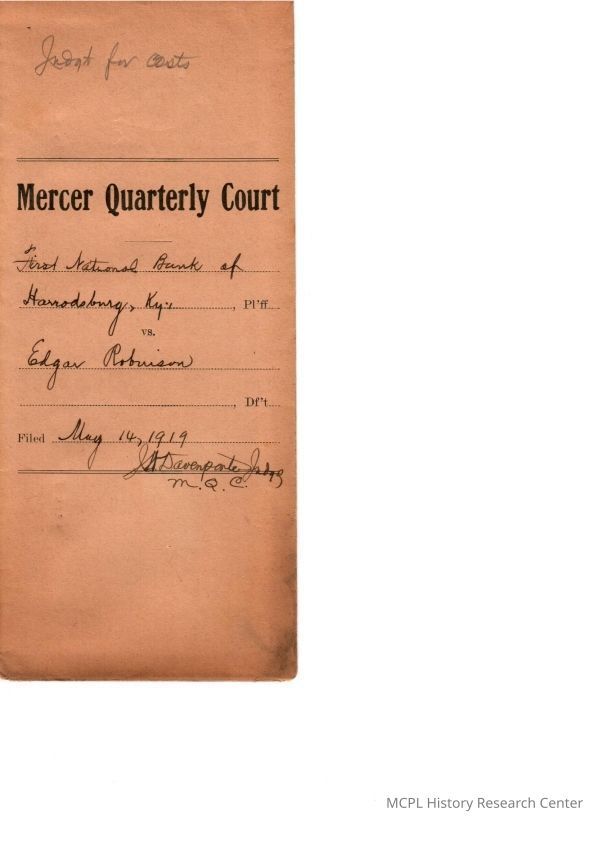 Judgt for costs
Mercer Quarterly Court
First National Bank of
Harrodsburg, Ky., Pl'ff
vs.
Edgar Robinson
, Df't
Filed May 14, 1919
Davenport Judge
M. Q. C.
MCPL History Research Center